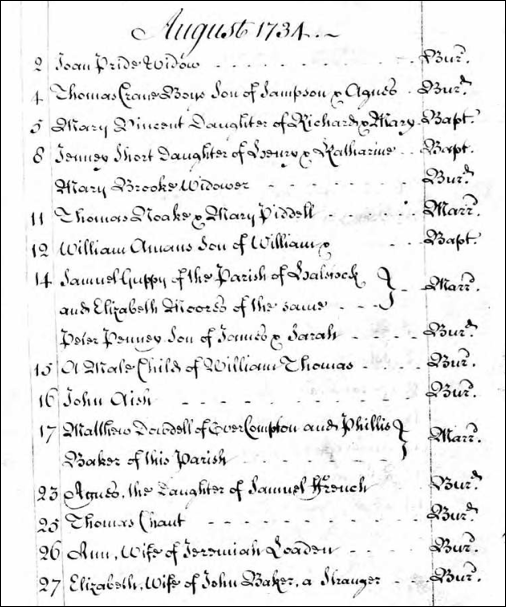 August 1734.
2 Joan Pride Widow - - - - - - Bur.d
4 Thomas Crane Boys Son of Sampson & Agnes - Bur.d
5 Mary Vincent Daughter of Richard & Mary Bapt.
8 Jenney Short Daughter of Henry & Katharine - - Bapt.
Mary Brooke Widower - - - - - Bur.d
11 Thomas Noake & Mary Piddell - - - - - Marr.d
12 William Amans Son of William & - - Bapt.
14 Samuel Guppy of the Parish of Halstock } Marr.d
and Elizabeth Moores of the same - - -
Peter Penney Son of James & Sarah - - - Bur.d
15 A Male Child of William Thomas - - - - Bur.d
16 John Aish - - - - - - - - Bur.d
17 Matthew Dowdell of Over Compton and Phillis } Marr.d
Baker of this Parish - - - - - -
23 Agnes, the Daughter of Samuel Ffrench Bur.d
25 Thomas Chant - - - - - - - - Bur.d
26 Ann, Wife of Jeremiah Loaden - - - Bur.d
27 Elizabeth, Wife of John Baker, a Stranger - - Bur.d